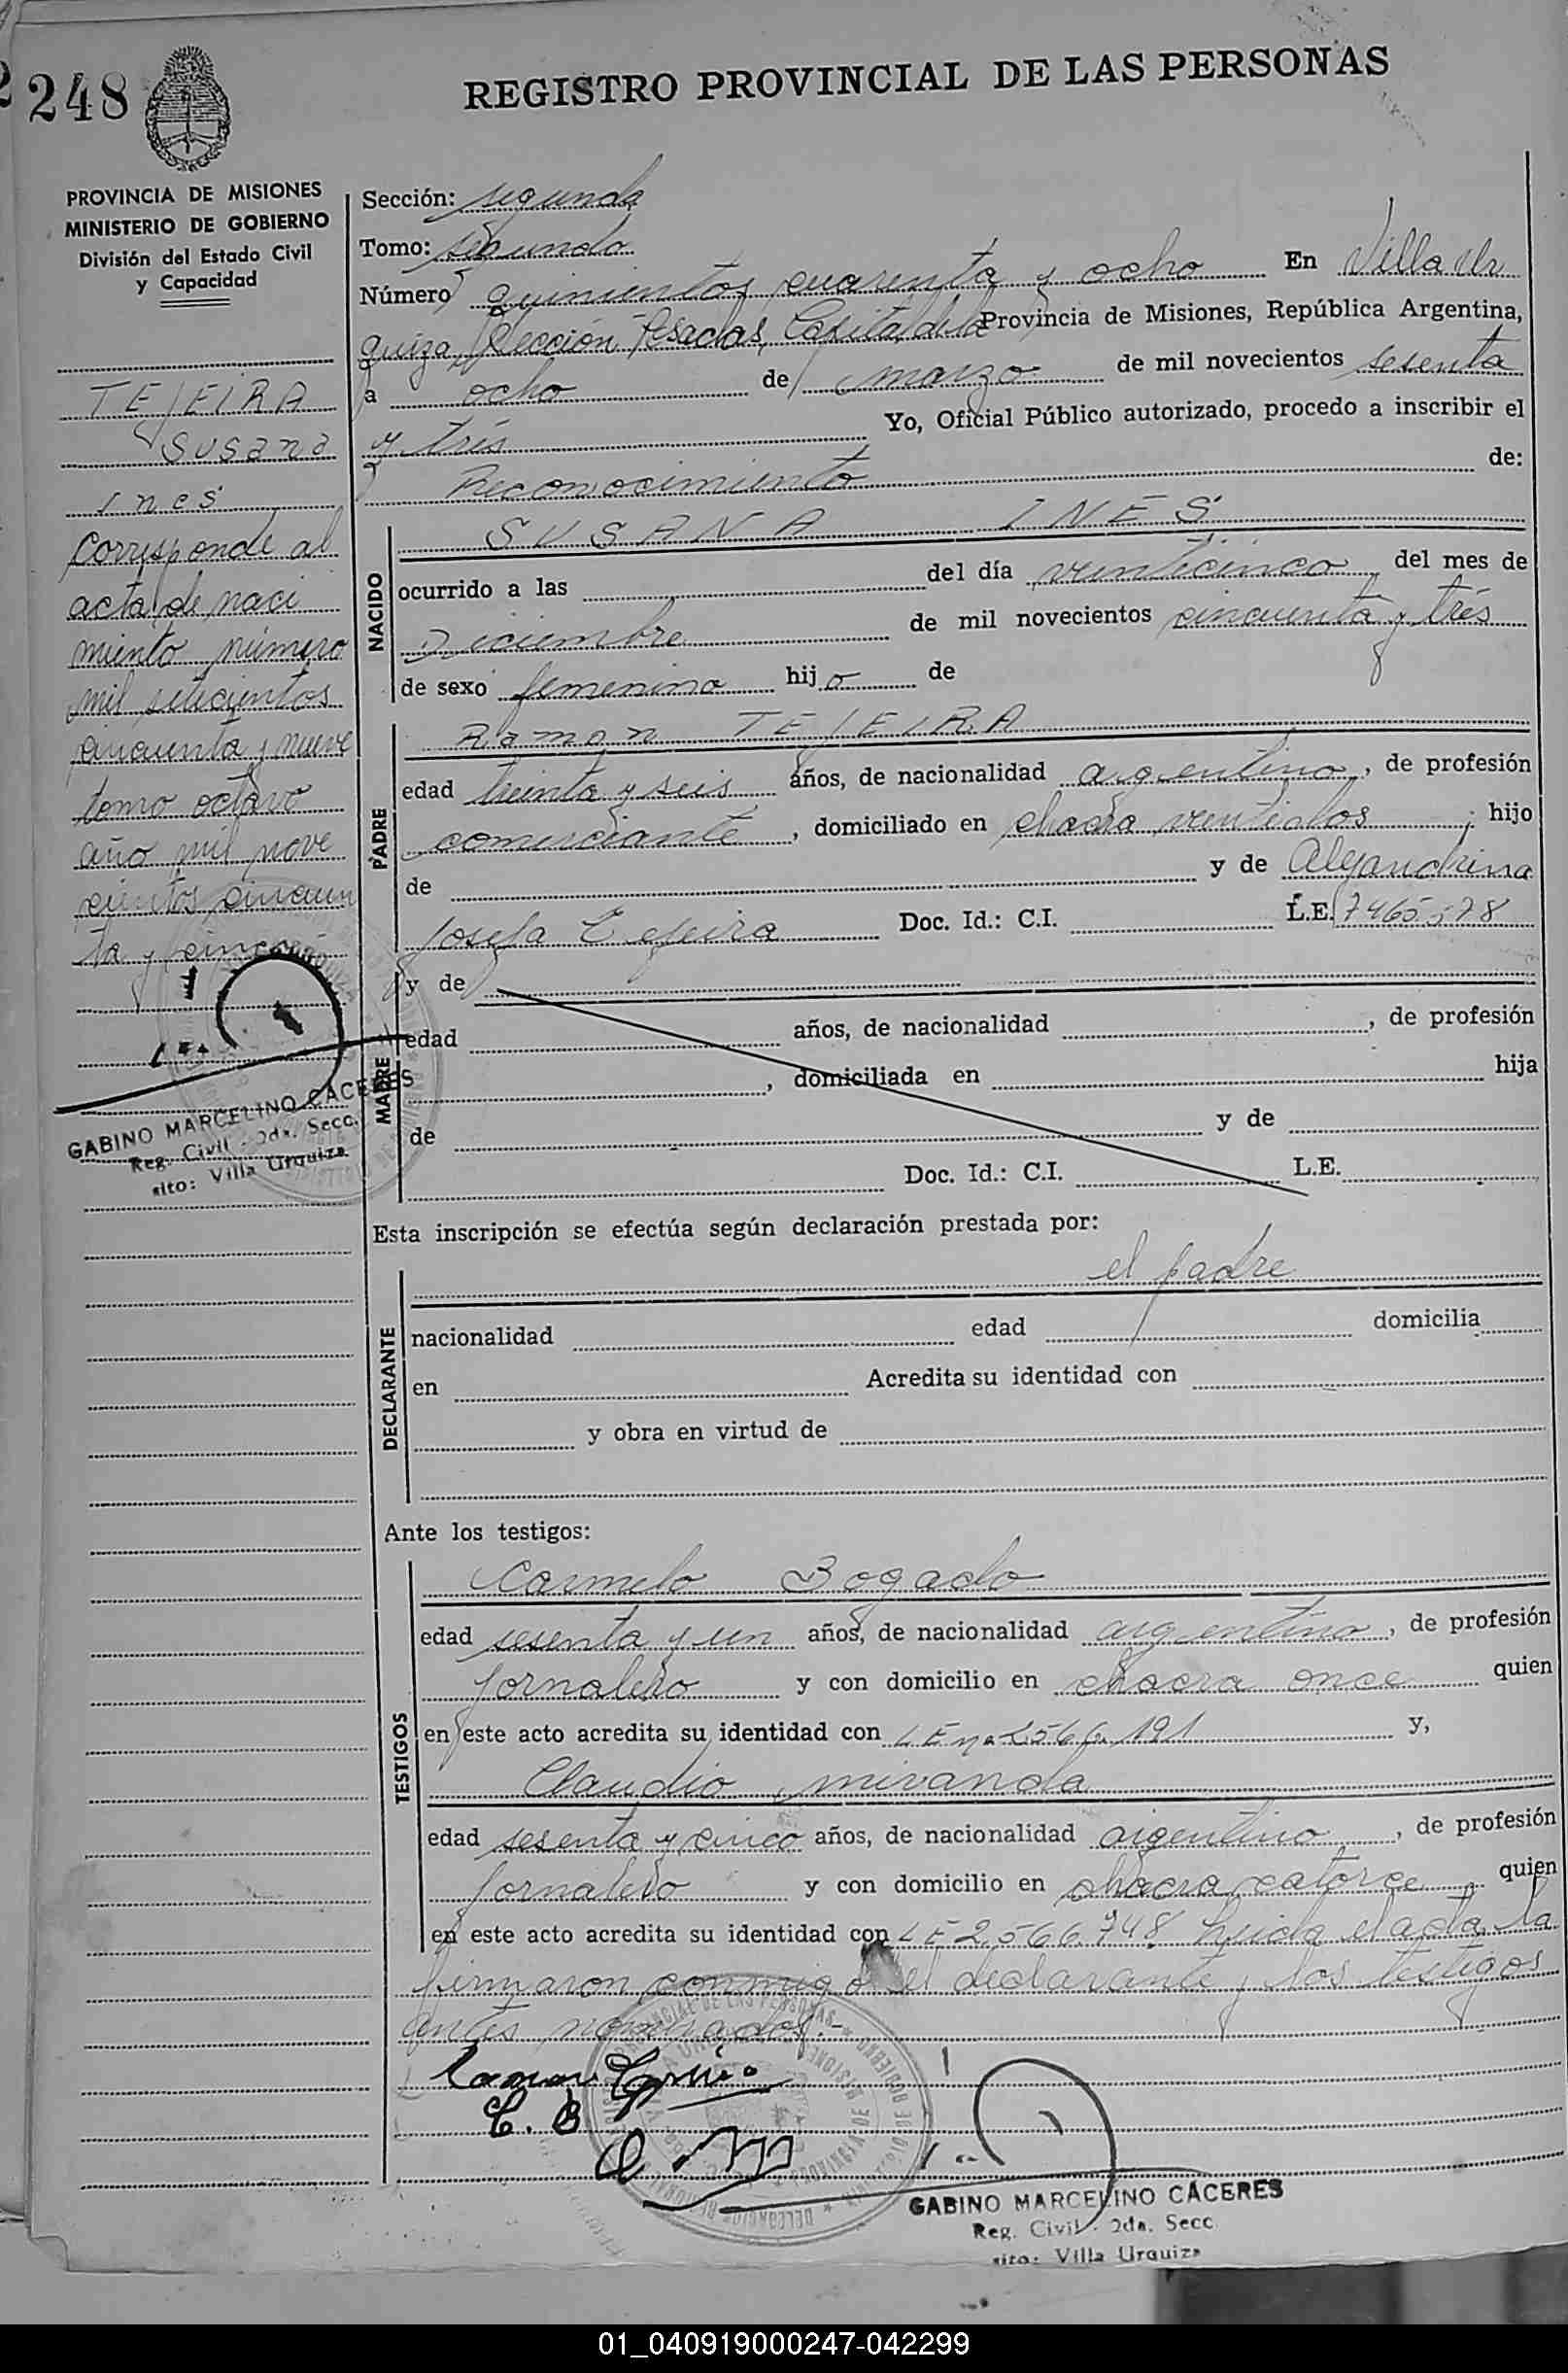 248
REGISTRO PROVINCIAL DE LAS PERSONAS
PROVINCIA DE MISIONES
MINISTERIO DE GOBIERNO
División del Estado Civil
y Capacidad
TEJEIRA
Susana
Ines
Corresponde al
acta de naci
miento número
mil setecientos
cincuenta y nueve
tomo octavo
año mil nove
cientos cincuen
ta y cinco
GABINO MARCELINO CACERES
Reg. Civil - 2da. Secc.
sito: Villa Urquiza
Sección: segunda
Tomo: segundo
Número quinientos cuarenta y ocho En Villa Ur
quiza, Sección Posadas, Capital de la Provincia de Misiones, República Argentina,
a ocho de marzo de mil novecientos sesenta
y trés Yo, Oficial Público autorizado, procedo a inscribir el
Reconocimiento de:
NACIDO
SUSANA INÉS
ocurrido a las del día veinticinco del mes de
Diciembre de mil novecientos cincuenta y trés
de sexo femenino hijo de
PADRE
Ramon TEJEIRA
edad treinta y seis años, de nacionalidad argentino, de profesión
comerciante, domiciliado en chacra veintidos; hijo
de y de Alejandrina
Josefa Tejeira Doc. Id.: C.I. L.E. 7465578
MADRE
y de
edad años, de nacionalidad , de profesión
, domiciliada en hija
de y de
Doc. Id.: C.I. L.E.
Esta inscripción se efectúa según declaración prestada por:
DECLARANTE
el padre
nacionalidad edad domicilia
en Acredita su identidad con
y obra en virtud de
Ante los testigos:
TESTIGOS
Carmelo Bogado
edad sesenta y un años, de nacionalidad argentino, de profesión
jornalero y con domicilio en chacra once quien
en este acto acredita su identidad con LE nº 2566.191 y,
Claudio miranda
edad sesenta y cinco años, de nacionalidad argentino, de profesión
jornalero y con domicilio en chacra catorce quien
en este acto acredita su identidad con LE 2.566.748 leida el acta, la
firmaron conmigo el declarante y los testigos
antes nombrados.-
C. B
GABINO MARCELINO CÁCERES
Reg. Civil - 2da. Secc
sito: Villa Urquiza
01_040919000247-042299